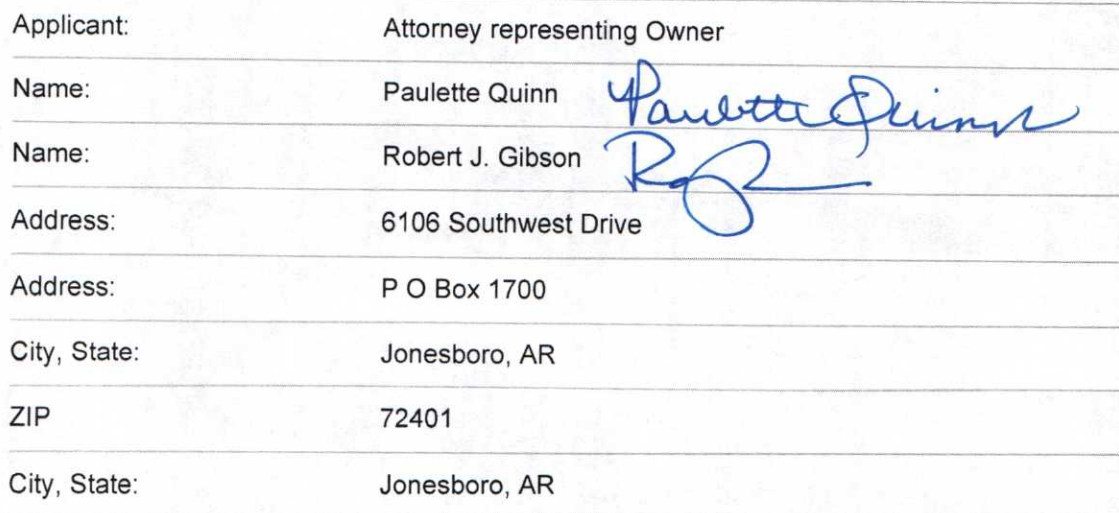 Applicant: Attorney representing Owner
Name: Paulette Quinn Paulette Quinn
Name: Robert J. Gibson
Address: 6106 Southwest Drive
Address: P O Box 1700
City, State: Jonesboro, AR
ZIP 72401
City, State: Jonesboro, AR